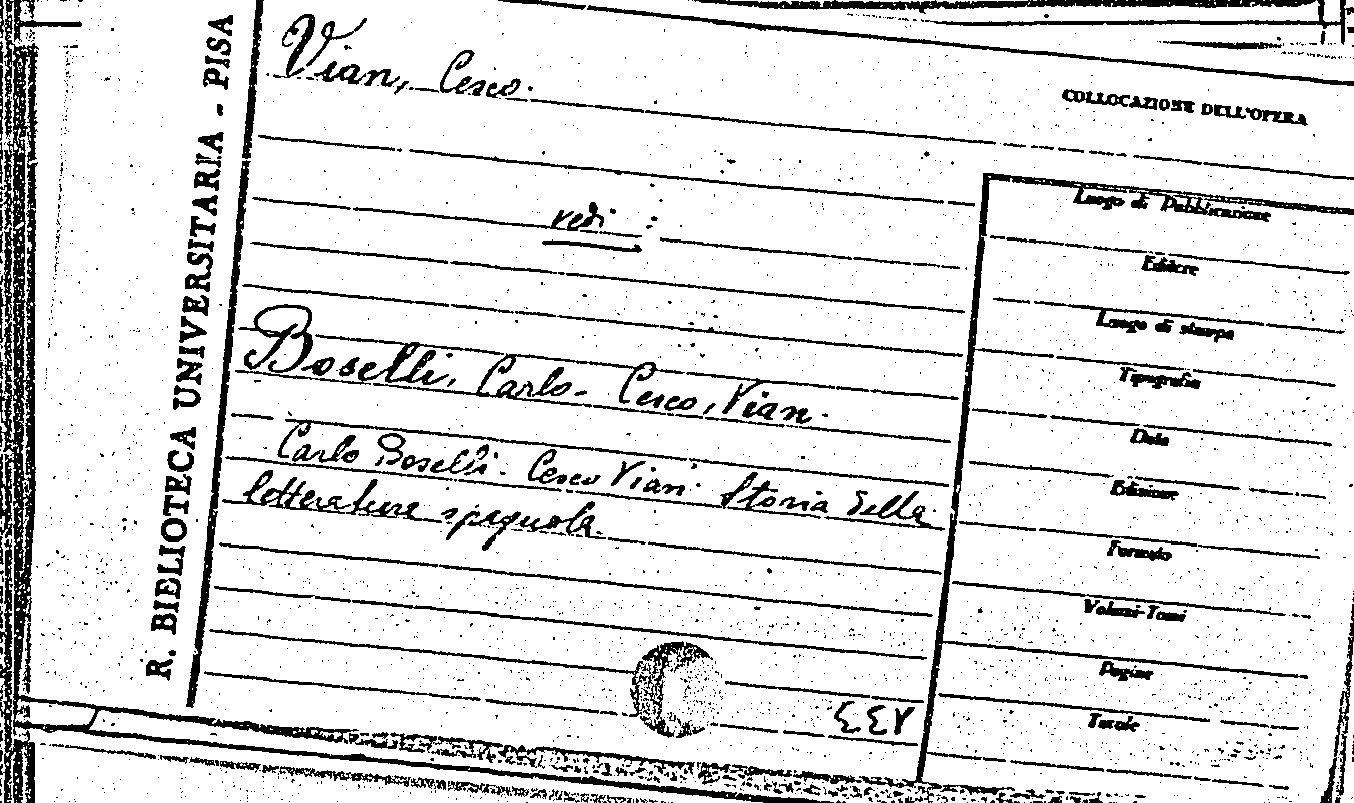 R. BIBLIOTECA UNIVERSITARIA - PISA
Vian, Cesco.
COLLOCAZIONE DELL'OPERA
vedi :
Boselli, Carlo - Cesco, Vian.
Carlo Boselli - Cesco Vian. Storia della
letteratura spagnola.
Luogo di Pubblicazione
Editore
Luogo di stampa
Tipografia
Data
Edizione
Formato
Volumi-Tomi
Pagine
Tavole